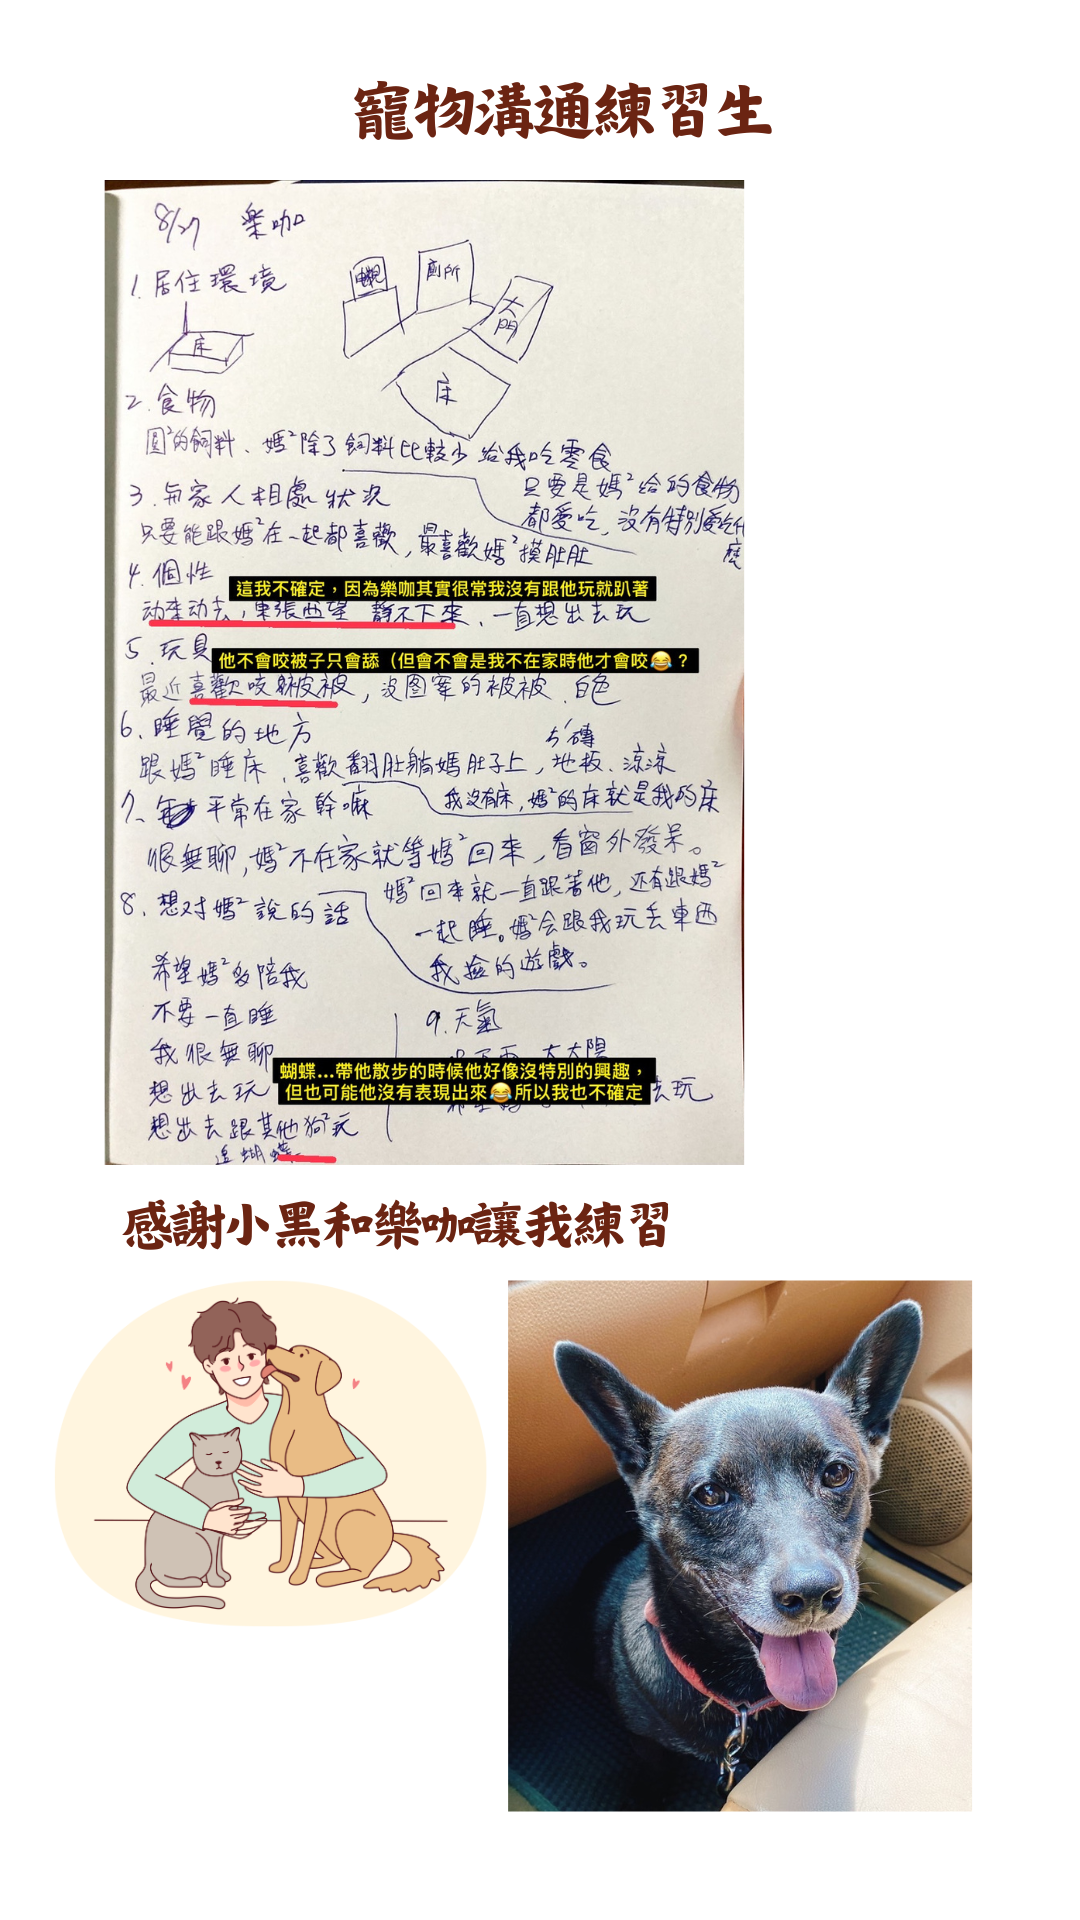 寵物溝通練習生
8/27 樂咖
1. 居住環境
電視
廁所
大門
床
床
2. 食物
圓²的飼料、媽²除了飼料比較少給我吃零食
只要是媽²給的食物
都愛吃，沒有特別愛吃什
麼
3. 與家人相處狀況
只要能跟媽²在一起都喜歡，最喜歡媽²摸肚肚
4. 個性
這我不確定，因為樂咖其實很常我沒有跟他玩就趴著
动來动去，東張西望 靜不下來、一直想出去玩
5. 玩具
他不會咬被子只會舔（但會不會是我不在家時他才會咬😂？
最近喜歡咬被被，沒图案的被被、白色
6. 睡覺的地方
磚
跟媽²睡床、喜歡翻肚躺媽肚子上，地板、涼涼
我沒有床，媽²的床就是我的床
7、平常在家幹嘛
很無聊，媽²不在家就等媽²回來，看窗外發呆。
媽²回來就一直跟著他，还有跟媽²
一起睡。媽²会跟我玩丟東西
我撿的遊戲。
8. 想对媽²說的話
希望媽²多陪我
不要一直睡
我很無聊
想出去玩
想出去跟其他狗²玩
追蝴蝶
9. 天氣
大太陽
去玩
蝴蝶...帶他散步的時候他好像沒特別的興趣，
但也可能他沒有表現出來😂所以我也不確定
感謝小黑和樂咖讓我練習